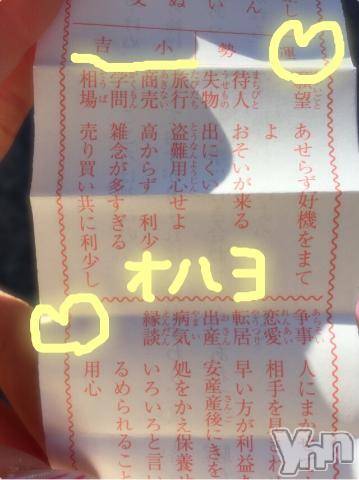 運勢 小吉
願望 あせらず好機をまて
よ
待人 おそいが来る
失物 出にくい
旅行 盗難用心せよ
商売 高からず 利少
学問 雑念が多すぎる
相場 売り買い共に利少し
オハヨ
争事 人にまか
恋愛 相手を見さ
転居 早い方が利益
出産 安産産後にきを
病気 処をかえ保養せ
縁談 いろいろと言い
るめられること
用心
YhN